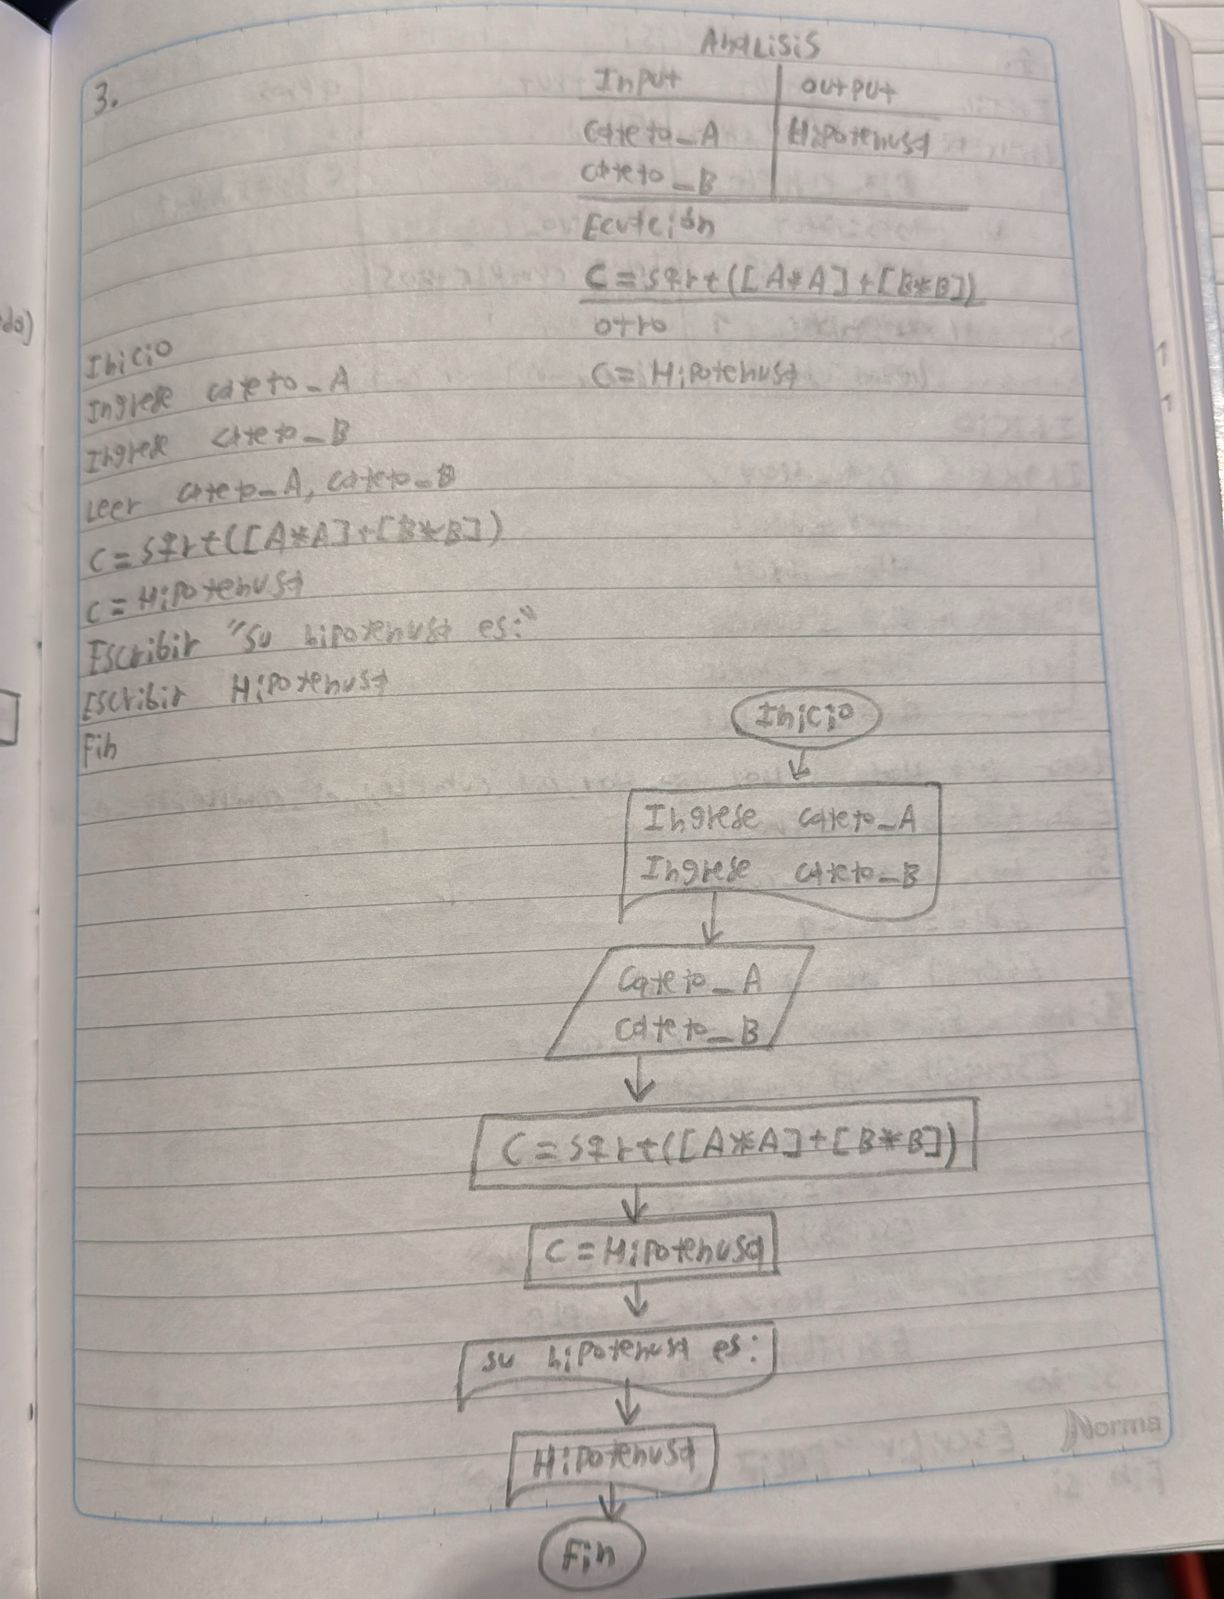 3.
Analisis
Input output
cateto_A Hipotenusa
cateto_B
Ecuación
C = sqrt([A*A]+[B*B])
otro
C = Hipotenusa
Inicio
Ingrese cateto_A
Ingrese cateto_B
Leer cateto_A, cateto_B
C = sqrt([A*A]+[B*B])
C = Hipotenusa
Escribir "su hipotenusa es:"
Escribir Hipotenusa
Fin
Inicio
Ingrese cateto_A
Ingrese cateto_B
Cateto_A
Cateto_B
C = sqrt([A*A]+[B*B])
C = Hipotenusa
su hipotenusa es:
Hipotenusa
Fin
Norma